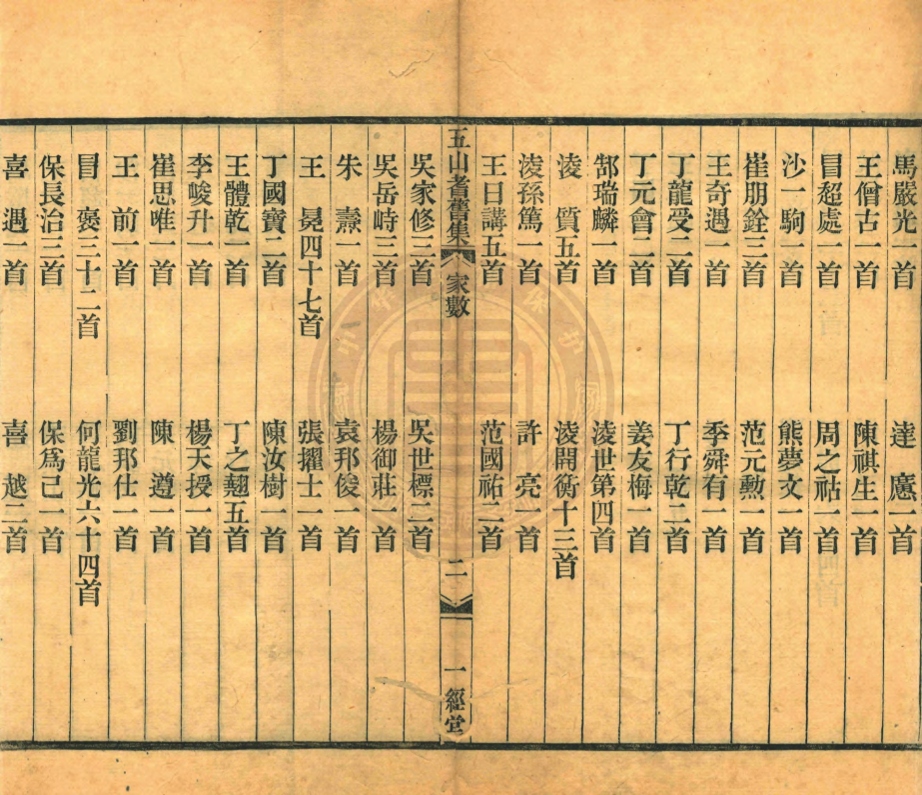 馬嚴光一首　達應一首
王僧古一首　陳祺生一首
冒超處一首　周之祜一首
沙一駒一首　熊夢文一首
崔朋銓三首　范元勲一首
王奇遇一首　季舜有一首
丁龍受二首　丁行乾二首
丁元會二首　姜友梅一首
郜瑞麟一首　淩世第四首
淩質五首　淩開衡十三首
淩孫篤一首　許亮一首
王日講五首　范國祐二首
五山耆舊集　家數　二　一經堂
吳家修三首　吳世標二首
吳岳峙三首　楊御莊一首
朱燾一首　袁邦俊一首
王晃四十七首　張擢士一首
丁國寶二首　陳汝樹一首
王體乾一首　丁之翹五首
李峻升一首　楊天授一首
崔思唯一首　陳遵一首
王前一首　劉邦仕一首
冒褒三十二首　何龍光六十四首
保長治三首　保爲己一首
喜遇一首　喜越二首